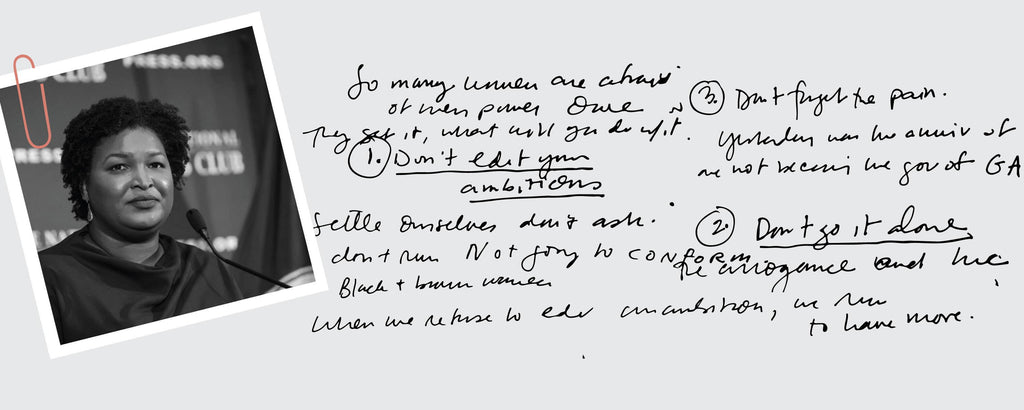 PRESS.ORG
CLUB
NATIONAL
PRESS
CLUB
So many women are afraid
of their power Once
They get it, what will you do w/it.
1. Don't edit your
ambitions
settle ourselves don't ask.
don't run Not going to CONFORM
Black + brown women
When we refuse to edit our ambition, we run
to have more.
3. Don't forget the pain.
Yesterday was the anniv of
me not becoming the gov of GA
2. Don't go it alone
The arrogance and